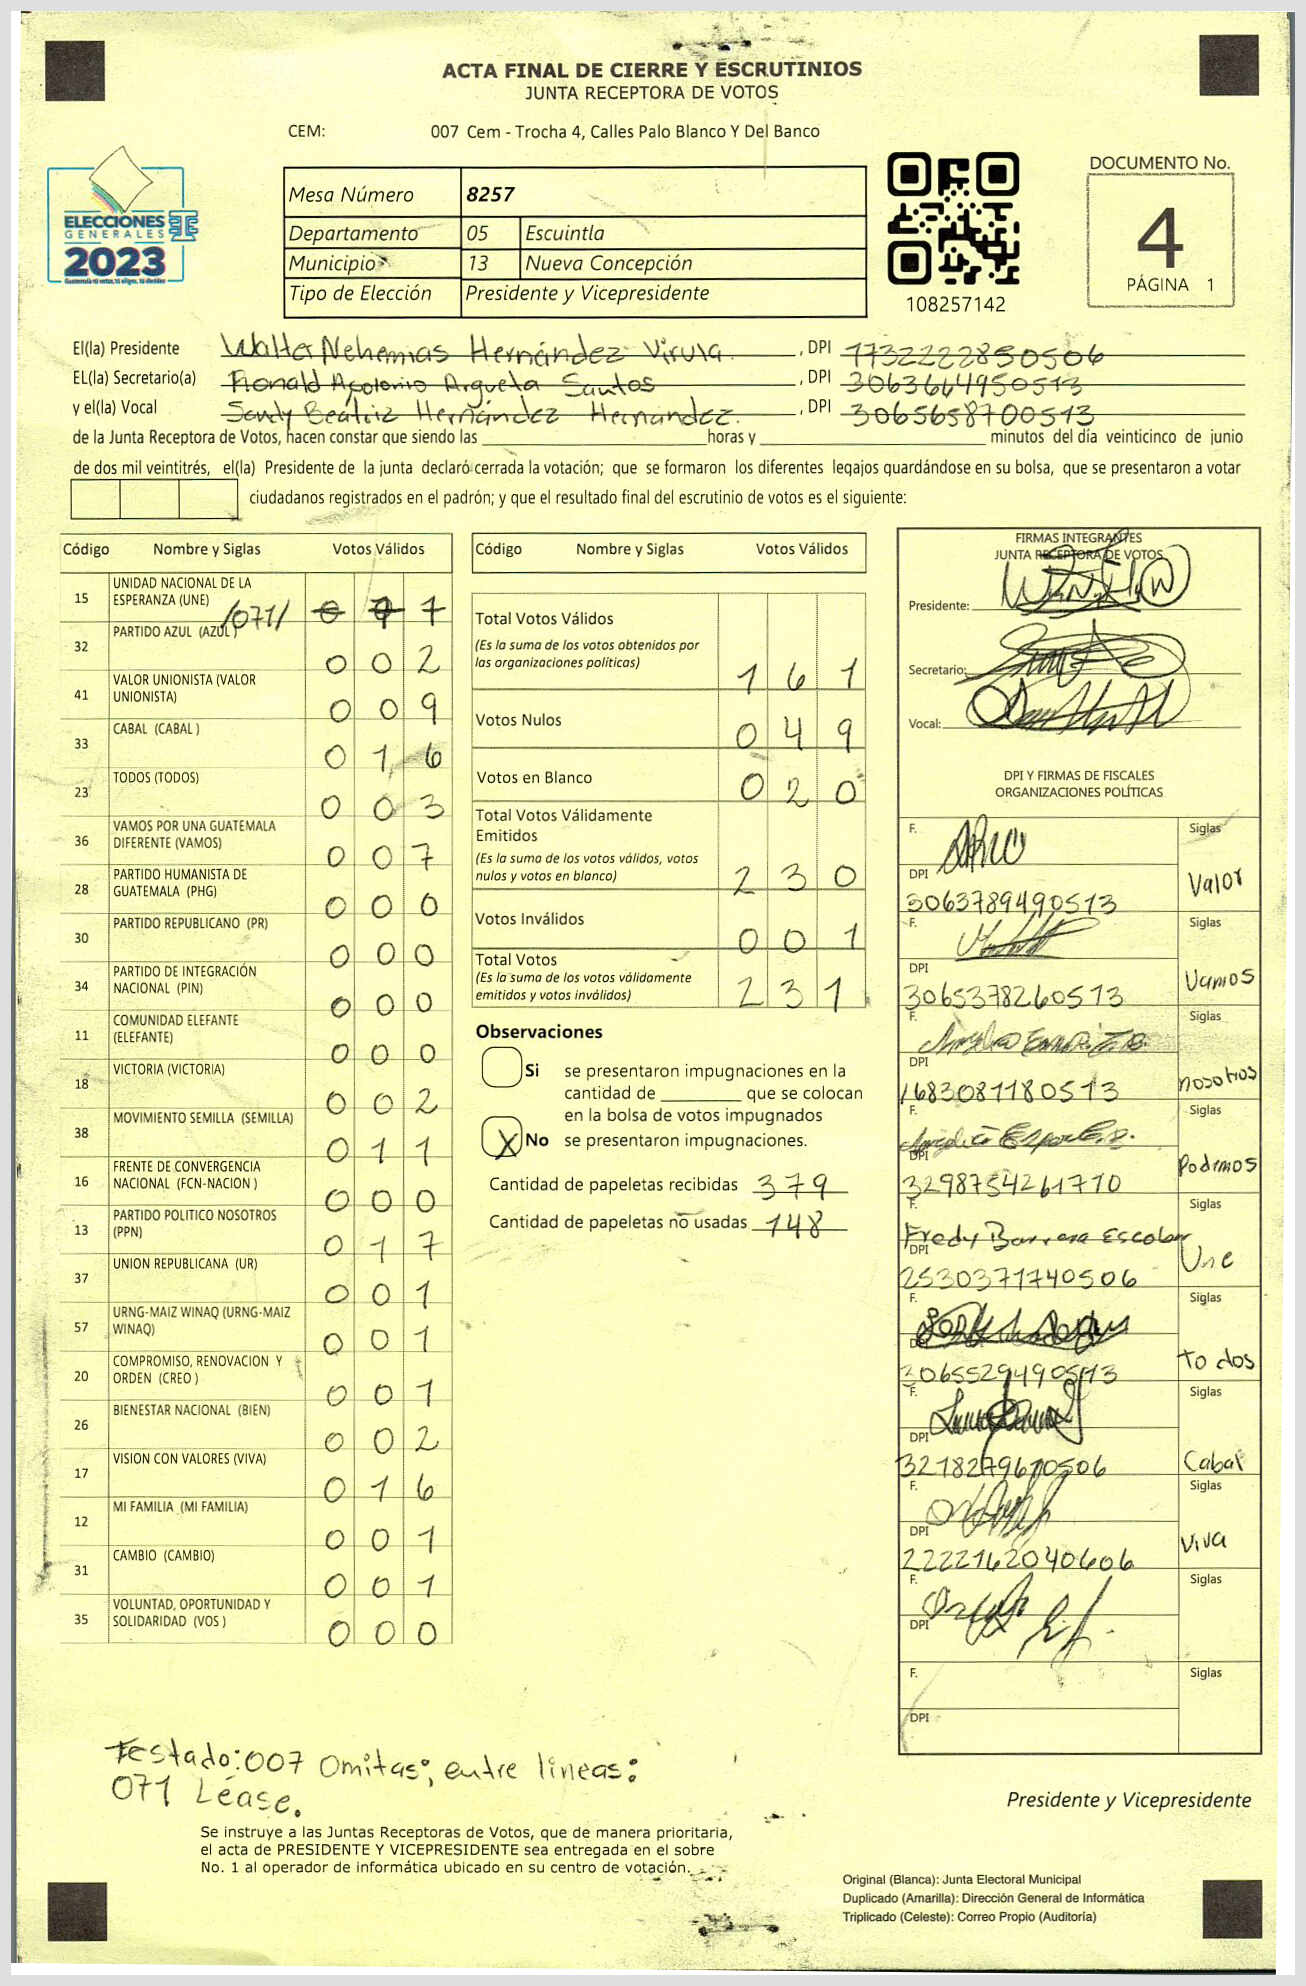 ACTA FINAL DE CIERRE Y ESCRUTINIOS
JUNTA RECEPTORA DE VOTOS
CEM: 007 Cem - Trocha 4, Calles Palo Blanco Y Del Banco
ELECCIONES
GENERALES
2023
Mesa Número 8257
Departamento 05 Escuintla
Municipio 13 Nueva Concepción
Tipo de Elección Presidente y Vicepresidente
108257142
DOCUMENTO No.
4
PÁGINA 1
El(la) Presidente Walter Nehemias Hernández Virula. , DPI 1732222850506
EL(la) Secretario(a) Ronald Apolonio Argueta Santos , DPI 3063664950513
y el(la) Vocal Sandy Beatriz Hernández Hernández. , DPI 3065658700513
de la Junta Receptora de Votos, hacen constar que siendo las horas y minutos del día veinticinco de junio
de dos mil veintitrés, el(la) Presidente de la junta declaró cerrada la votación; que se formaron los diferentes legajos guardándose en su bolsa, que se presentaron a votar
ciudadanos registrados en el padrón; y que el resultado final del escrutinio de votos es el siguiente:
Código Nombre y Siglas Votos Válidos
15 UNIDAD NACIONAL DE LA ESPERANZA (UNE) /071/
32 PARTIDO AZUL (AZUL) 0 0 2
41 VALOR UNIONISTA (VALOR UNIONISTA) 0 0 9
33 CABAL (CABAL ) 0 1 6
23 TODOS (TODOS) 0 0 3
36 VAMOS POR UNA GUATEMALA DIFERENTE (VAMOS) 0 0 7
28 PARTIDO HUMANISTA DE GUATEMALA (PHG) 0 0 0
30 PARTIDO REPUBLICANO (PR) 0 0 0
34 PARTIDO DE INTEGRACIÓN NACIONAL (PIN) 0 0 0
11 COMUNIDAD ELEFANTE (ELEFANTE) 0 0 0
18 VICTORIA (VICTORIA) 0 0 2
38 MOVIMIENTO SEMILLA (SEMILLA) 0 1 1
16 FRENTE DE CONVERGENCIA NACIONAL (FCN-NACION ) 0 0 0
13 PARTIDO POLITICO NOSOTROS (PPN) 0 1 7
37 UNION REPUBLICANA (UR) 0 0 1
57 URNG-MAIZ WINAQ (URNG-MAIZ WINAQ) 0 0 1
20 COMPROMISO, RENOVACION Y ORDEN (CREO ) 0 0 1
26 BIENESTAR NACIONAL (BIEN) 0 0 2
17 VISION CON VALORES (VIVA) 0 1 6
12 MI FAMILIA (MI FAMILIA) 0 0 1
31 CAMBIO (CAMBIO) 0 0 1
35 VOLUNTAD, OPORTUNIDAD Y SOLIDARIDAD (VOS ) 0 0 0
Código Nombre y Siglas Votos Válidos
Total Votos Válidos
(Es la suma de los votos obtenidos por
las organizaciones políticas) 1 6 1
Votos Nulos 0 4 9
Votos en Blanco 0 2 0
Total Votos Válidamente
Emitidos
(Es la suma de los votos válidos, votos
nulos y votos en blanco) 2 3 0
Votos Inválidos 0 0 1
Total Votos
(Es la suma de los votos válidamente
emitidos y votos inválidos) 2 3 1
Observaciones
Si se presentaron impugnaciones en la
cantidad de que se colocan
en la bolsa de votos impugnados
X No se presentaron impugnaciones.
Cantidad de papeletas recibidas 379
Cantidad de papeletas no usadas 148
FIRMAS INTEGRANTES
JUNTA RECEPTORA DE VOTOS
Presidente:
Secretario:
Vocal:
DPI Y FIRMAS DE FISCALES
ORGANIZACIONES POLÍTICAS
F. Siglas
DPI 3063789490513 Valor
F. Siglas
DPI 3065378260513 Vamos
F. Siglas
DPI 1683081180513 nosotros
F. Siglas
DPI 3298754261710 Podemos
F. Fredy Barrera Escobar Siglas
DPI 2530371740506 Une
F. Siglas
3065529490513 Todos
F. Siglas
DPI 3218279610506 Cabal
F. Siglas
DPI 2222162040606 Viva
F. Siglas
DPI
F. Siglas
DPI
Testado: 007 Omitas; entre lineas:
071 Léase.
Presidente y Vicepresidente
Se instruye a las Juntas Receptoras de Votos, que de manera prioritaria,
el acta de PRESIDENTE Y VICEPRESIDENTE sea entregada en el sobre
No. 1 al operador de informática ubicado en su centro de votación.
Original (Blanca): Junta Electoral Municipal
Duplicado (Amarilla): Dirección General de Informática
Triplicado (Celeste): Correo Propio (Auditoría)